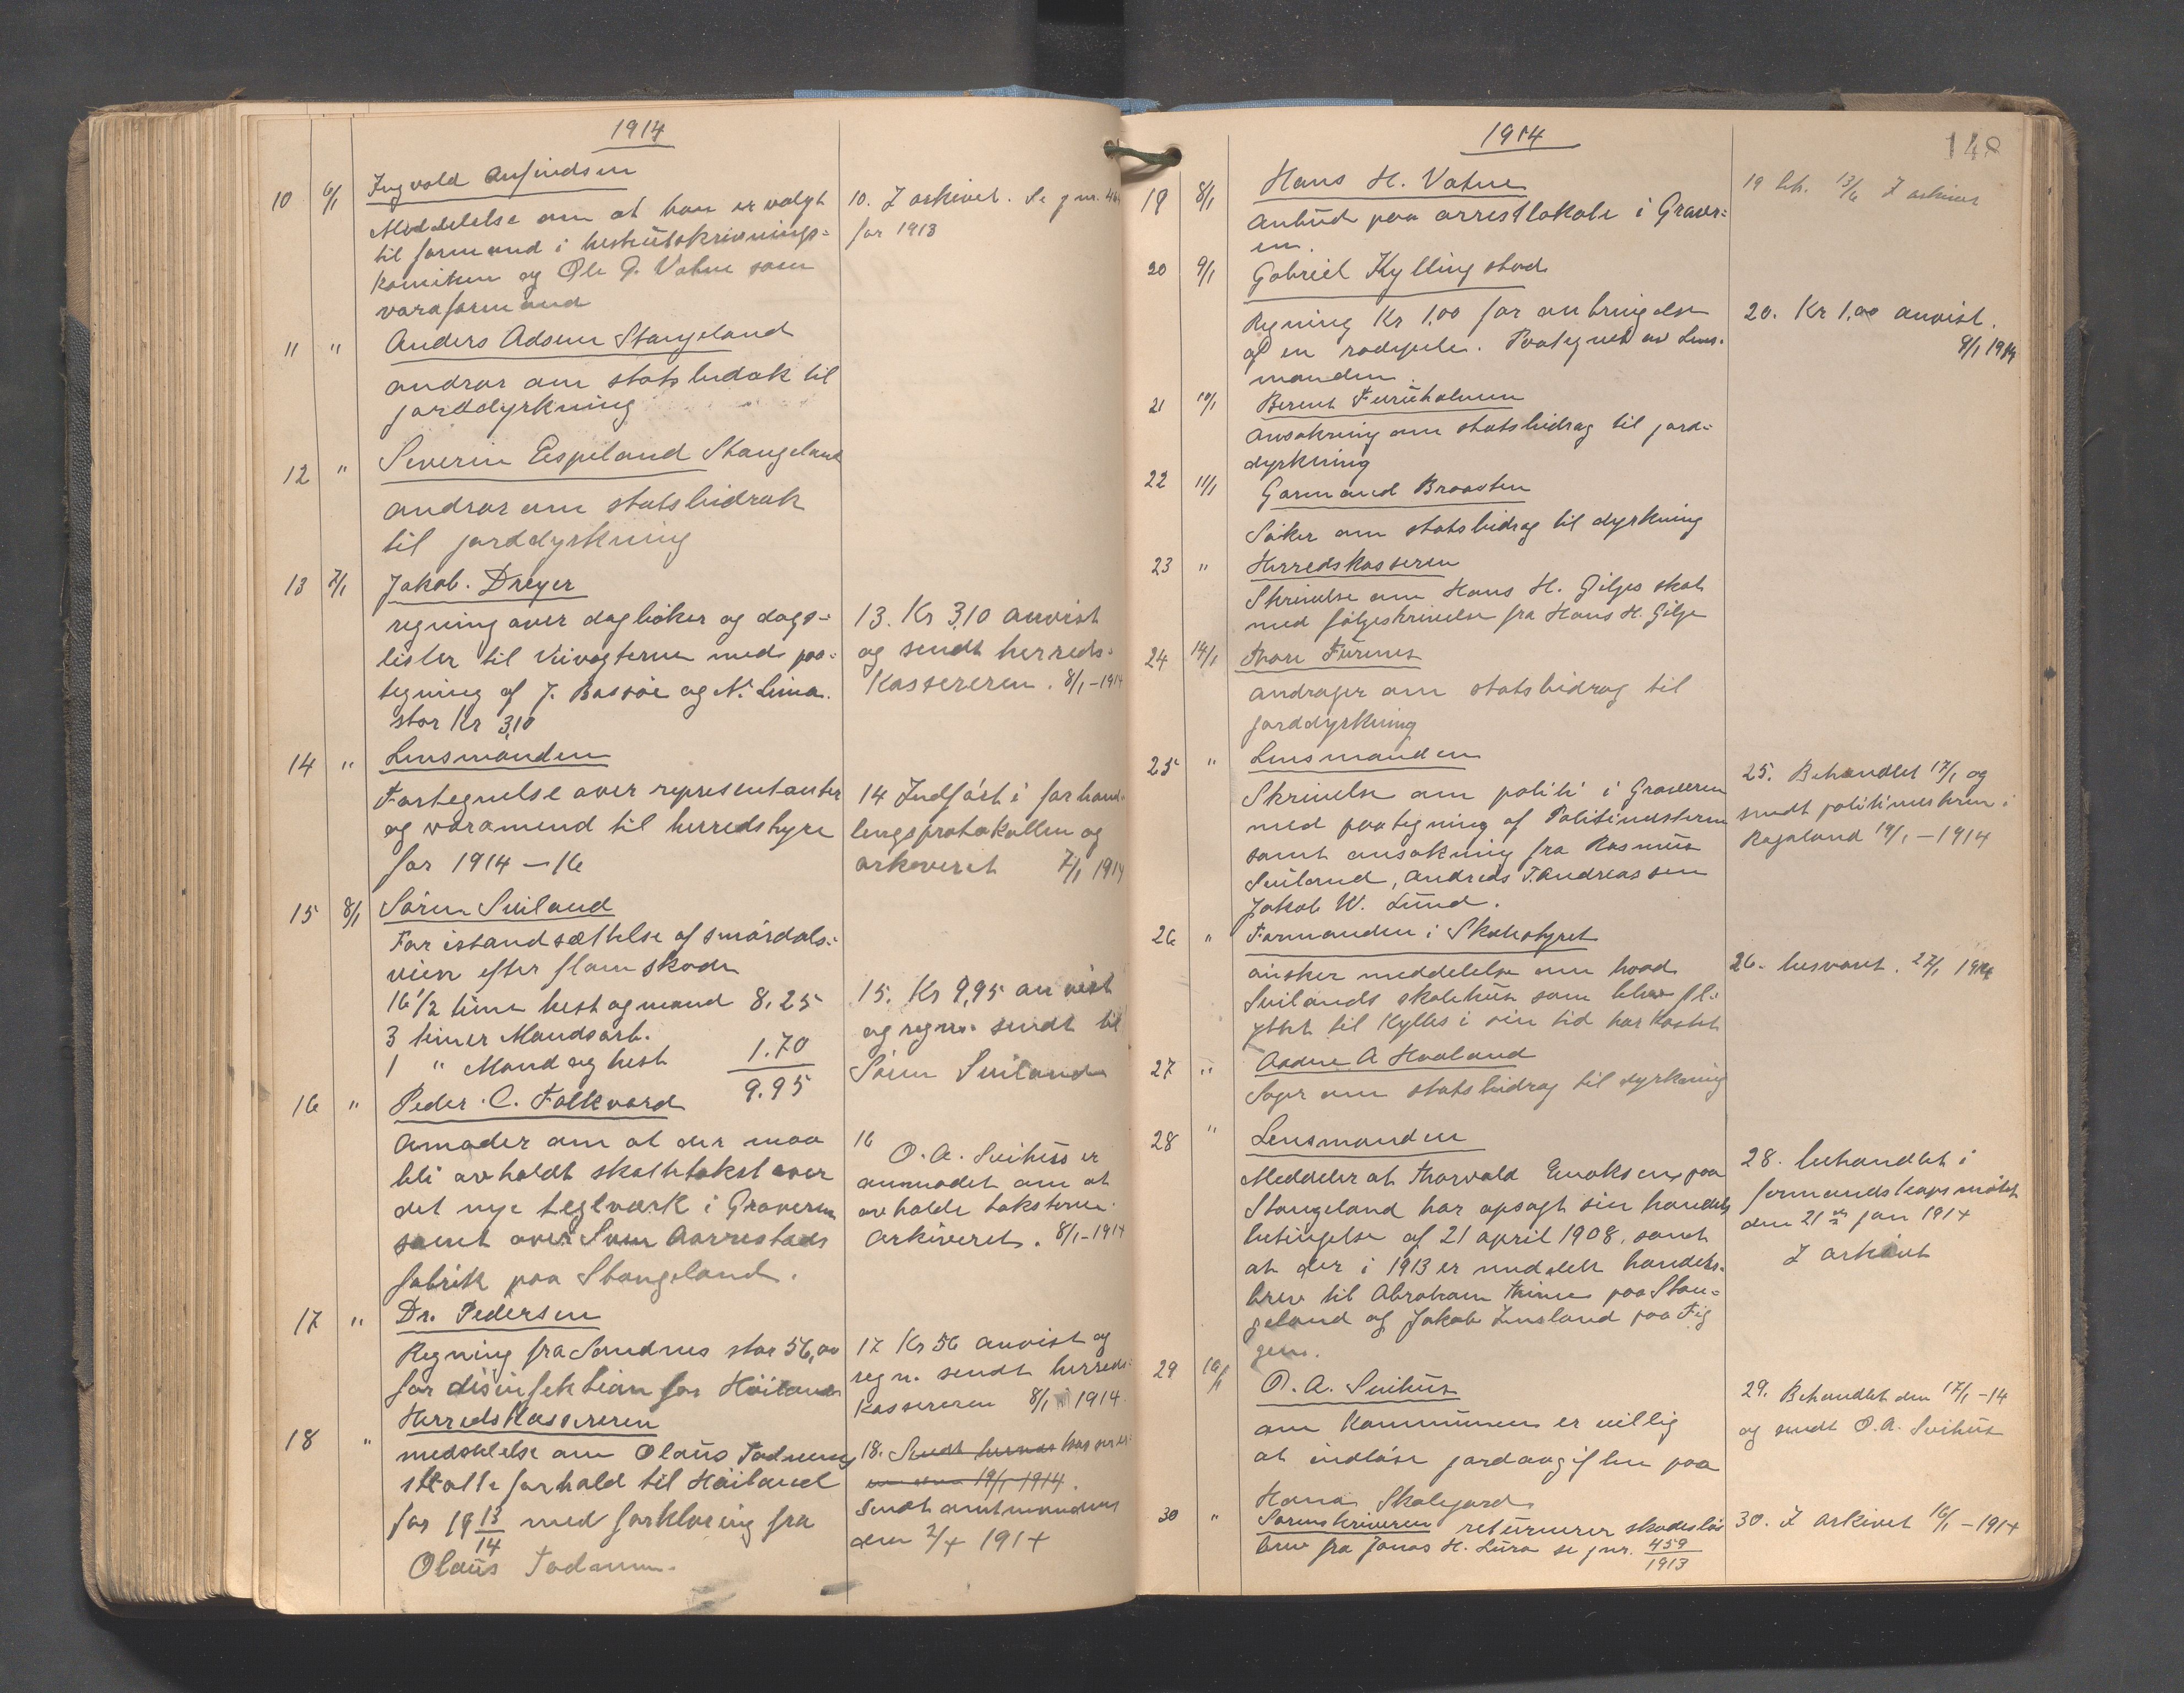 1914
10 6/1 Ingvold Anfindsen
Meddelelse om at han er valgt
til formand i hestutskrivnings-
komiteen og Ole G. Vatne som
varaformand
10. I arkivet. Se jnr.
for 1913
11 " Anders Adsen Stangeland
andror om statsbidak til
jorddyrkning
12 " Severin Espeland Stangeland
andror om statsbidrak
til jorddyrkning
13 7/1 Jakob. Dreyer
regning over dagbøker og dags-
lister til Veivogterne med paa-
tegning af J. Bassøe og N. Lima.
stor Kr 3,10
13. Kr 3,10 anvist
og sendt herreds-
kassereren. 8/1-1914
14 " Lensmanden
Fortegnelse over representanter
og varamend til herredstyre
for 1914-16
14 Indført i forhand-
lingsprotokollen og
arkeveret 7/1 1914
15 8/1 Søren Sviland
For istandsættelse af smørdals-
veien efter flomskade
16 1/2 time hest og mand 8,25
3 timer Mandsarb.
1 " Mand og hest 1.70
9.95
15. Kr 9,95 anvist
og regn. sendt til
Søren Sviland
16 " Peder. C. Folkvord
Anmoder om at der maa
bli avholdt skattetakst over
det nye teglværk i Graveren
samt over Sven Aarrestads
fabrik paa Stangeland.
16 O. A. Svihus er
anmodet om at
avholde taksterne.
Arkiveret. 8/1-1914
17 " Dr. Pedersen
Regning fra Sandnes stor 56,00
for disinfektion for Høiland
17 Kr 56 anvist og
regn. sendt herreds-
kassereren 8/1 1914.
18 " Herredskassereren
meddelelse om Olaus Todnem
skatteforhold til Høiland
for 19 13/14 med forklaring fra
Olaus Todnem.
18. Sendt herreds kasserer-
en den 19/1-1914.
Sendt amtmanden
den 2/4 1914
1914
148
19 8/1 Hans H. Vatne
Anbud paa arrestlokale i Graver-
en.
19 beh. 13/6 I arkivet
20 9/1 Gabriel Kyllingstad
Regning Kr 1,00 for anbringelse
af en rodepele. Paategnet av Lens-
manden.
20. Kr 1,00 anvist.
9/1 1914
21 10/1 Berent Furuholmen
Ansøkning om statsbidrag til jord-
dyrkning
22 11/1 Gormand Braasten
Søker om statsbidrag til dyrkning
23 " Herredskasseren
Skrivelse om Hans H. Giljes skat
med følgeskrivelse fra Hans H. Gilje
24 14/1 Tore Furenes
andrager om statsbidrag til
jorddyrkning
25 " Lensmanden
Skrivelse om politi i Graveren
med paategning af Politimesteren
samt ansøkning fra Rasmus
Sviland, Andreas T. Andreassen
Jakob W. Lund.
25. Behandlet 17/1 og
sendt politimesteren i
Rogaland 19/1-1914
26 " Formanden i Skolestyret
ønsker meddelelse om hvad
Svilands skolehus som blev fl-
yttet til Kylles i sin tid har kostet
26. besvaret. 27/1 1914
27 " Aadne A Haaland
Søger om statsbidrag til dyrkning
28 " Lensmanden
Meddeler at Thorvald Enoksen paa
Stangeland har opsagt sin handels
betingelse af 21 april 1908, samt
at der i 1913 er meddelt handels-
brev til Abraham Thime paa Stan-
geland og Jakob Lensland paa Fig
gen.
28. behandlet i
formandskapsmøtet
den 21de jan 1914
I arkivet
29 16/1 O. A. Svihus
om kommunen er villig
at indløse jordavgiften paa
Hana Skolejord
29. Behandlet den 17/1-14
og sendt O. A. Svihus
30 " Sorenskriveren returnerer skadesløs
brev fra Jonas H. Lura se jnr. 459/1913
30. I arkivet 16/1-1914